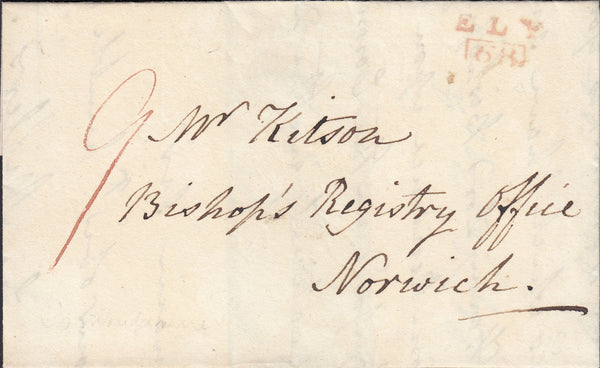 ELY
68
9
Mr Kitson
Bishop's Registry Office
Norwich.